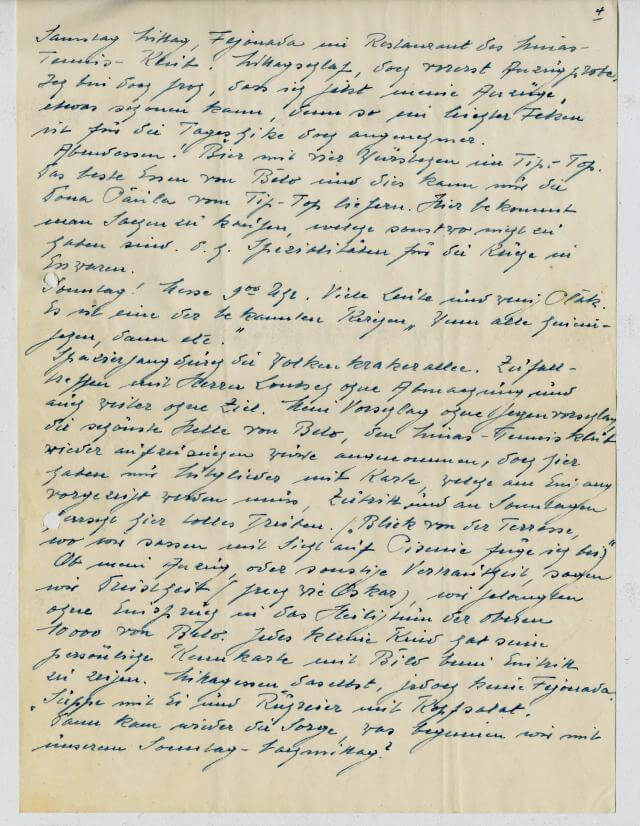 4
Samstag Mittag, Fejonada im Restaurant des Minas-
Tennis-Klub. Mittagschlaf, doch vorerst Anzugprobe,
Ich bin doch froh, dass ich jetzt meine Anzüge,
etwas schonen kann, denn so ein leichter Fetzen
ist für die Tageshitze doch angenehmer.
Abendessen! Bier mit vier Würstchen im Tip-Top.
Das beste Essen von Belo und dies kann mir die
Dona Paula vom Tip-Top liefern. Hier bekommt
man Sachen zu kaufen, welche sonst wo nicht zu
haben sind. d.h. Spezialitäten für die Küche in
Esswaren.
Sonntag! Messe 9⁰⁰ Uhr. Viele Leute und wenig Platz.
Es ist eine der bekannten Kirchen, "Wenn alle hinein-
gehen, dann etc."
Spaziergang durch die Wolkenkratzerallee. Zufall-
treffen mit Herrn ohne Abmachung und
auch weiter ohne Ziel. Mein Vorschlag ohne Gegenvorschlag,
die schönste Stelle von Belo, den Minas-Tennisklub
wieder aufzusuchen wurde angenommen, doch hier
haben nur Mitglieder mit Karte, welche am Eingang
vorgezeigt werden muss, Zutritt und an Sonntagen
herrscht hier tolles Treiben. ("Blick von der Terrasse,
wo wir sassen mit Sicht auf Piscine füge ich bei)"
Ob mein Anzug, oder sonstige Vertrautheit, sagen
wir Dreistheit (frech wie Oskar), wir gelangten
ohne Einspruch in das Heiligtum der oberen
10000 von Belo. Jedes kleine Kind hat seine
persönliche Kennkarte mit Bild beim Eintritt
zu zeigen. Mittagessen daselbst, jedoch keine Fejonada.
"Suppe mit Ei und Rühreier mit Kopfsalat.
Dann kam wieder die Sorge, was beginnen wir mit
unserem Sonntag-Nachmittag?